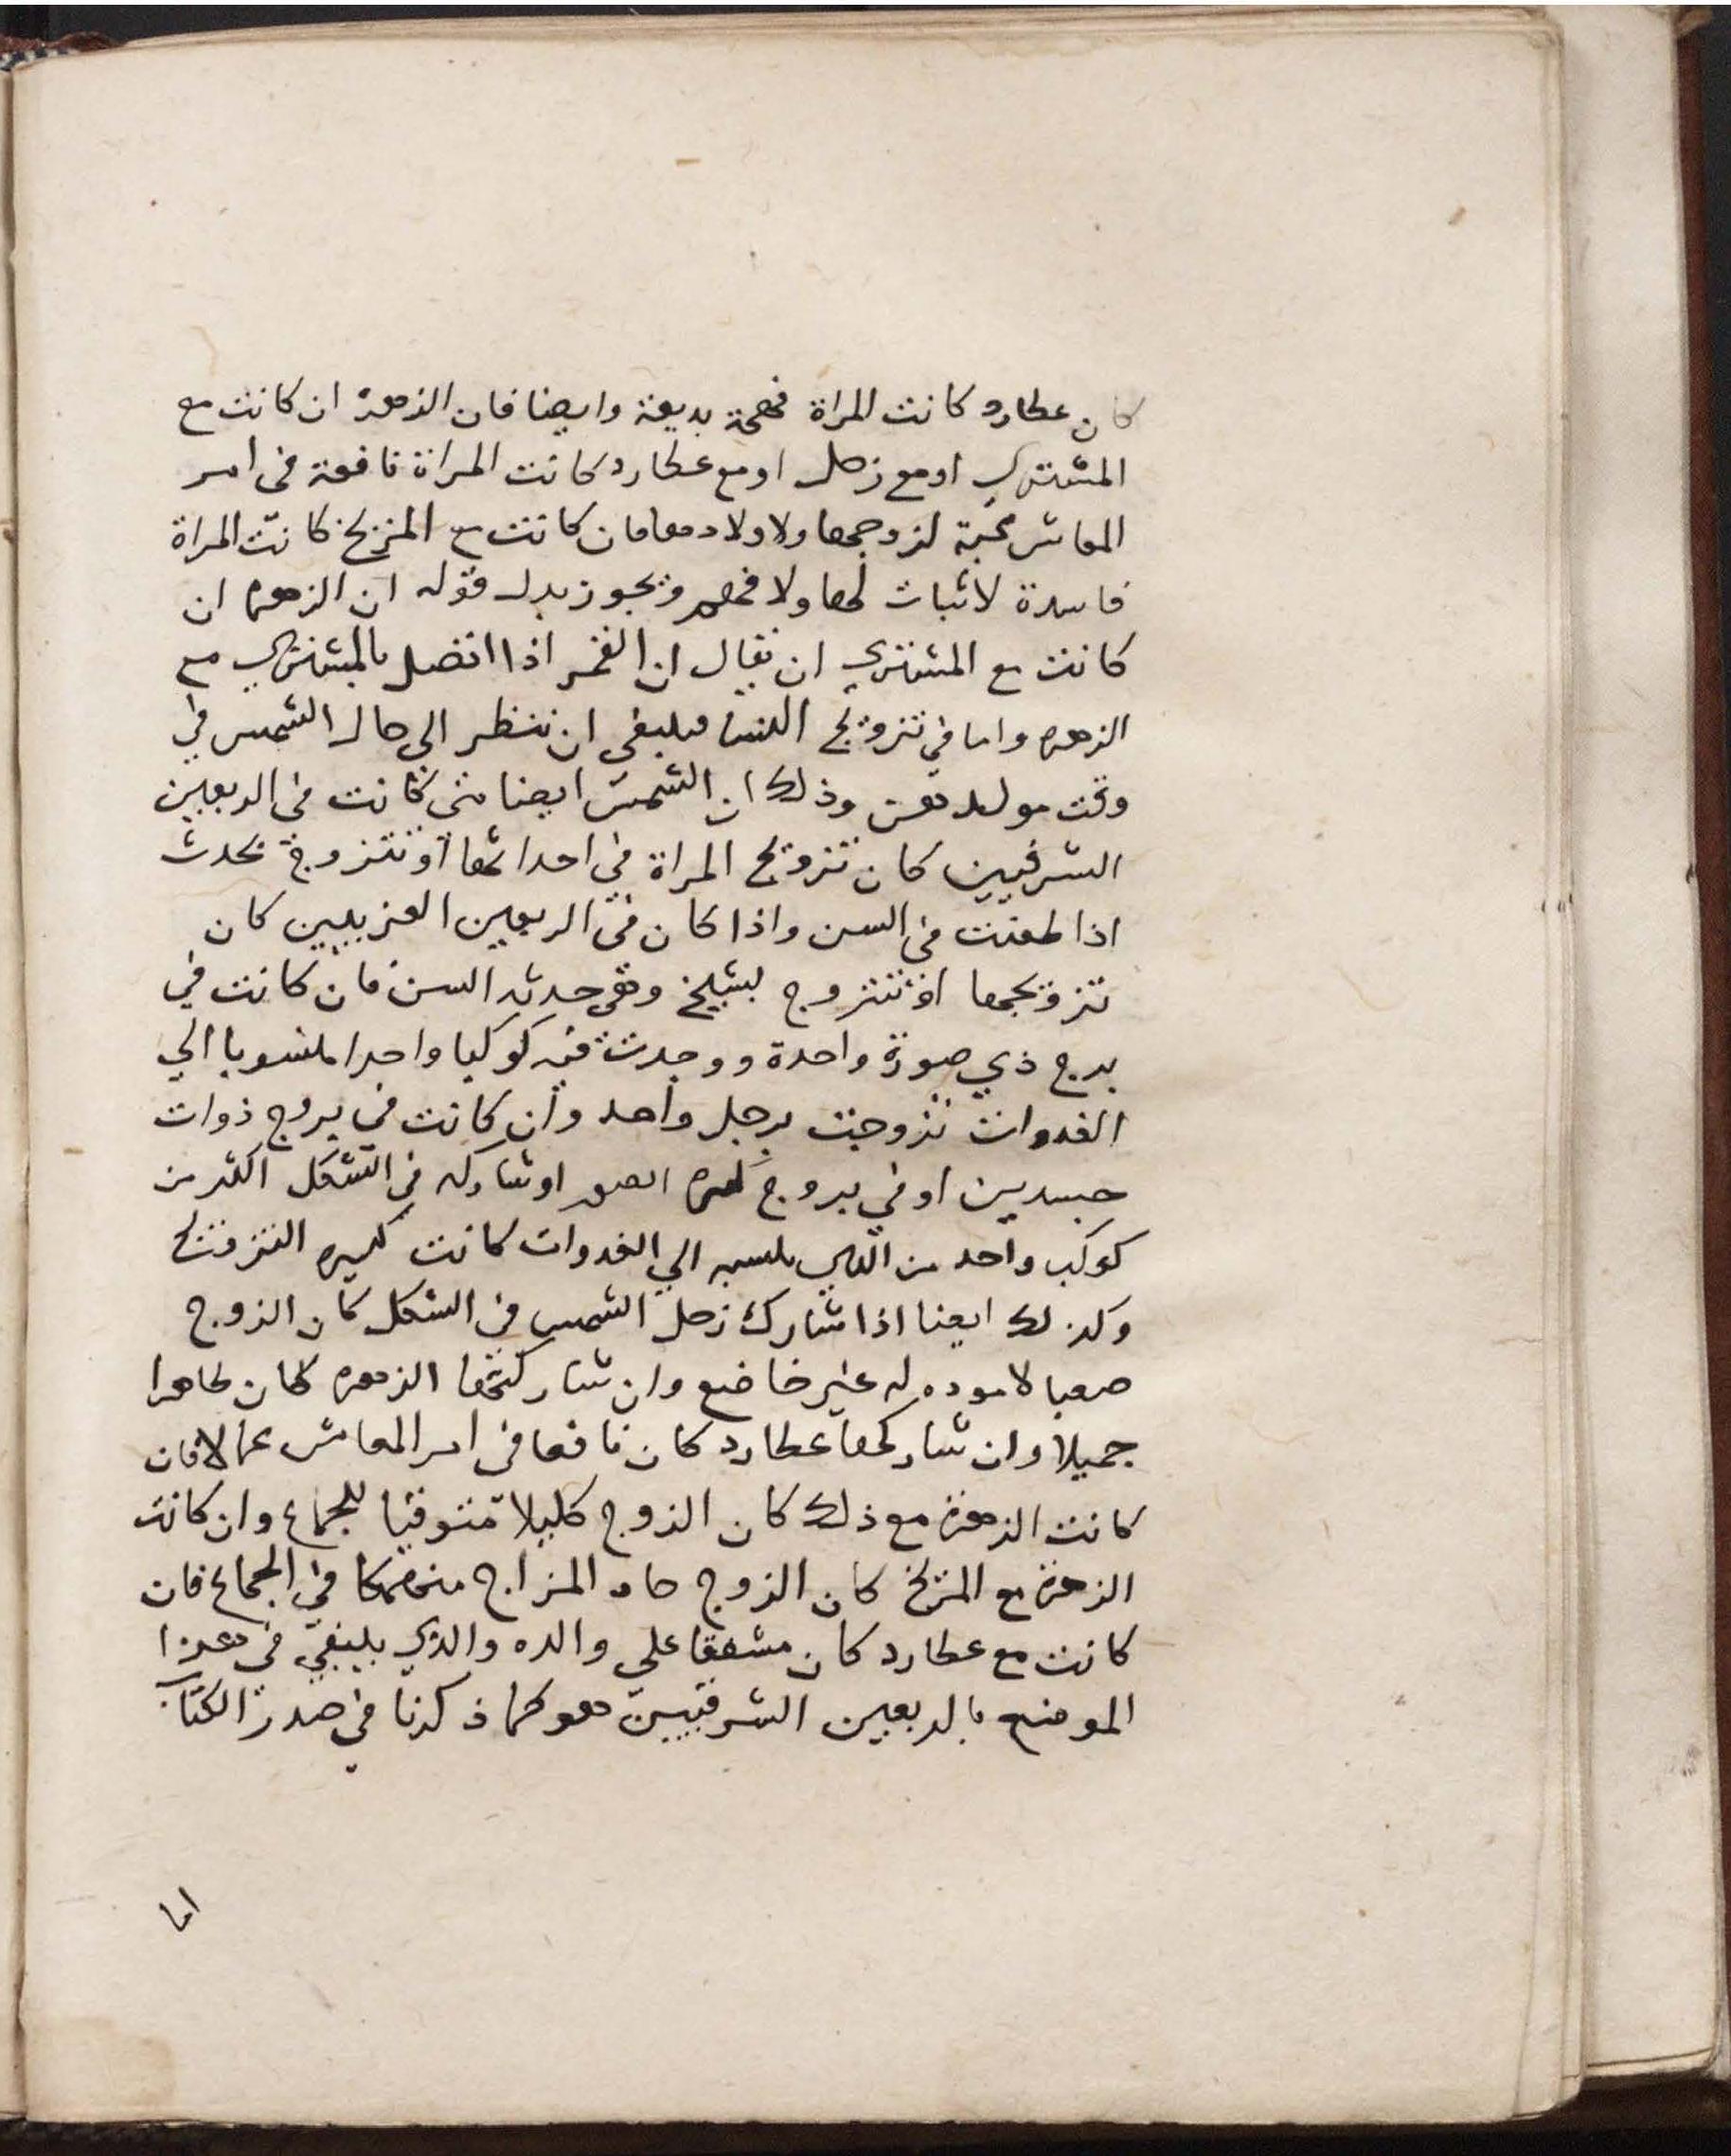 كان عطارد كانت المراة فهمة بديعة وايضا فان الزهرة ان كانت مع
المشترى او مع زحل او مع عطارد كانت المراة نافعة فى امر
المعاش محبة لزوجها ولاولادها فان كانت مع المريخ كانت المراة
فاسدة لاثبات لها ولا فهم ويجوز بدل قوله ان الزهره ان
كانت مع المشتري ان يقال ان القمر اذا اتصل بالمشترى مع
الزهره واما في تزويج النسا فينبغى ان ننظر الى حال الشمس في
وقت مولدهن وذلك ان الشمس ايضا متى كانت فى الربعين
الشرقيين كان تزويج المراة في احداثها او تتزوج بحدث
اذا طعنت فى السن واذا كان فى الربعين الغربيين كان
تزويجها او تتزوج بشيخ وهى حدثه السن فان كانت في
برج ذي صورة واحدة ووجدت فيه كوكبا واحدا منسوبا الي
الغدوات تزوجت برجل واحد وان كانت فى بروج ذوات
جسدين او في بروج الصور او شاركه فى الشكل اكثر من
كوكب واحد من التى الي الغدوات كانت كثيره التزويج
وكذلك ايضا اذا شارك زحل الشمس فى الشكل كان الزوج
صعبا لا موده له غير خاضع وان شاركتها الزهره كان طاهرا
جميلا وان شاركها عطارد كان نافعا فى امر المعاش عمالا فان
كانت الزهرة مع ذلك كان الزوج كليلا متوقيا للجماع وان كانت
الزهرة مع المريخ كان الزوج حاد المزاج منهمكا في الجماع فان
كانت مع عطارد كان مشفقا علي والده والذي ينبغي فى هذا
الموضع بالربعين الشرقيين هو كما ذكرنا في صدر الكتاب
اما